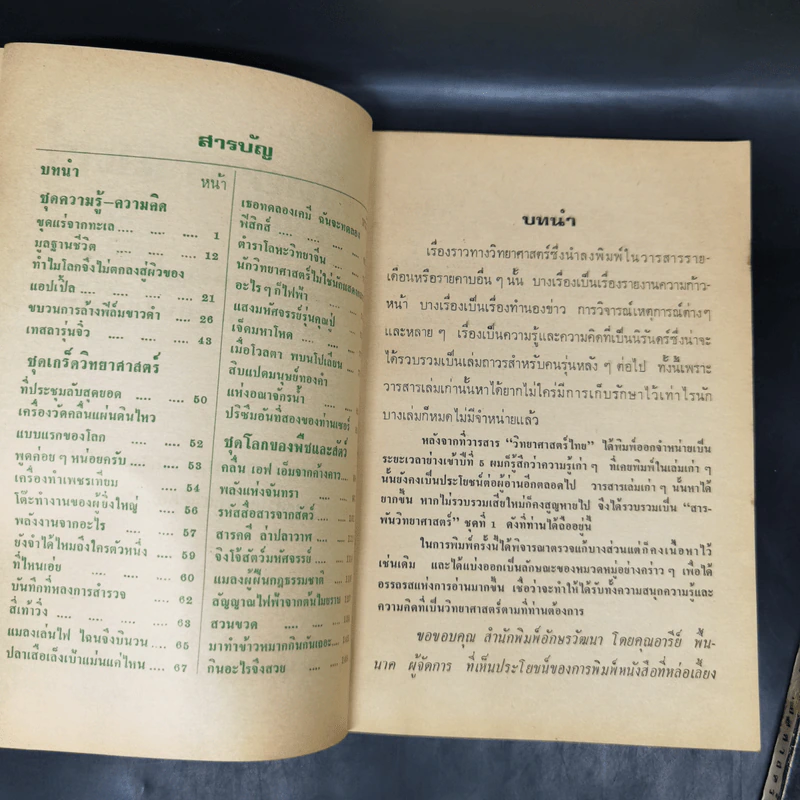 สารบัญ
บทนำ
หน้า
ชุดความรู้–ความคิด
ขุดแร่จากทะเล .... .... .... 1
มูลฐานชีวิต .... .... .... 12
ทำไมโลกจึงไม่ตกลงสู่ผิวของ
แอปเปิ้ล .... .... .... 21
ขบวนการล้างฟิล์มขาวดำ .... 26
เทสลารุ่นจิ๋ว .... .... .... 43
ชุดเกร็ดวิทยาศาสตร์
ที่ประชุมลับสุดยอด .... .... 50
เครื่องวัดคลื่นแผ่นดินไหว
แบบแรกของโลก .... .... 52
พูดค่อย ๆ หน่อยครับ .... .... 53
เครื่องทำเพชรเทียม .... 54
โต๊ะทำงานของผู้ยิ่งใหญ่ .... 56
พลังงานจากอะไร .... .... 57
ยังจำได้ไหมถึงใครตัวหนึ่ง .... 59
ที่ไหนเอ่ย .... .... .... 60
บันทึกที่หลงการสำรวจ .... 62
สี่เท้าวิ่ง .... .... .... 63
แมลงเล่นไฟ ไฉนจึงบินวน .... 65
ปลาเสือเล็งเป้าแม่นแค่ไหน .... 67
เธอทดลองเคมี ฉันจะทดลอง
ฟิสิกส์ .... .... ....
ตำราโลหะวิทยาจีน ....
นักวิทยาศาสตร์ไม่ใช่นักแสดง
อะไร ๆ ก็ไฟฟ้า .... ....
แสงมหัศจรรย์รุ่นคุณปู่
เจ็ดมหาโหด .... ....
เมื่อโวลตา พบนโปเลียน
สิบแปดมนุษย์ทองคำ
แห่งอาณาจักรน้ำ ....
ปริซึมอันที่สองของท่านเซอร์
ชุดโลกของพืชและสัตว์
คลื่น เอฟ เอ็มจากค้างคาว ....
พลังแห่งจันทรา .... ....
รหัสสื่อสารจากสัตว์ ....
สารคดี ล่าปลาวาฬ ....
จิงโจ้สัตว์มหัศจรรย์ ....
แมลงผู้ฝืนกฎธรรมชาติ ....
สัญญาณไฟฟ้าจากต้นไมยราบ
สวนขวด .... .... ....
มาทำข้าวหมากกินกันเถอะ ....
กินอะไรจึงสวย .... ....
บทนำ
เรื่องราวทางวิทยาศาสตร์ซึ่งนำลงพิมพ์ในวารสารราย-
เดือนหรือรายคาบอื่น ๆ นั้น บางเรื่องเป็นเรื่องรายงานความก้าว-
หน้า บางเรื่องเป็นเรื่องทำนองข่าว การวิจารณ์เหตุการณ์ต่างๆ
และหลาย ๆ เรื่องเป็นความรู้และความคิดที่เป็นนิรันดร์ซึ่งน่าจะ
ได้รวบรวมเป็นเล่มถาวรสำหรับคนรุ่นหลัง ๆ ต่อไป ทั้งนี้เพราะ
วารสารเล่มเก่านั้นหาได้ยากไม่ใคร่มีการเก็บรักษาไว้เท่าไรนัก
บางเล่มก็หมดไม่มีจำหน่ายแล้ว
หลังจากที่วารสาร “วิทยาศาสตร์ไทย” ได้พิมพ์ออกจำหน่ายเป็น
ระยะเวลาย่างเข้าปีที่ 5 ผมก็รู้สึกว่าความรู้เก่า ๆ ที่เคยพิมพ์ในเล่มเก่า ๆ
นั้นยังคงเป็นประโยชน์ต่อผู้อ่านอีกตลอดไป วารสารเล่มเก่า ๆ นั้นหาได้
ยากขึ้น หากไม่รวบรวมเสียใหม่ก็คงสูญหายไป จึงได้รวบรวมเป็น “สาร-
พันวิทยาศาสตร์” ชุดที่ 1 ดังที่ท่านได้ถืออยู่นี้
ในการพิมพ์ครั้งนี้ได้พิจารณาตรวจแก้บางส่วนแต่ก็คงเนื้อหาไว้
เช่นเดิม และได้แบ่งออกเป็นลักษณะของหมวดหมู่อย่างคร่าว ๆ เพื่อได้
อรรถรสแห่งการอ่านมากขึ้น เชื่อว่าจะทำให้ได้รับทั้งความสนุกความรู้และ
ความคิดที่เป็นวิทยาศาสตร์ตามที่ท่านต้องการ
ขอขอบคุณ สำนักพิมพ์อักษรวัฒนา โดยคุณอารีย์ พื้น-
นาค ผู้จัดการ ที่เห็นประโยชน์ของการพิมพ์หนังสือที่หล่อเลี้ยง